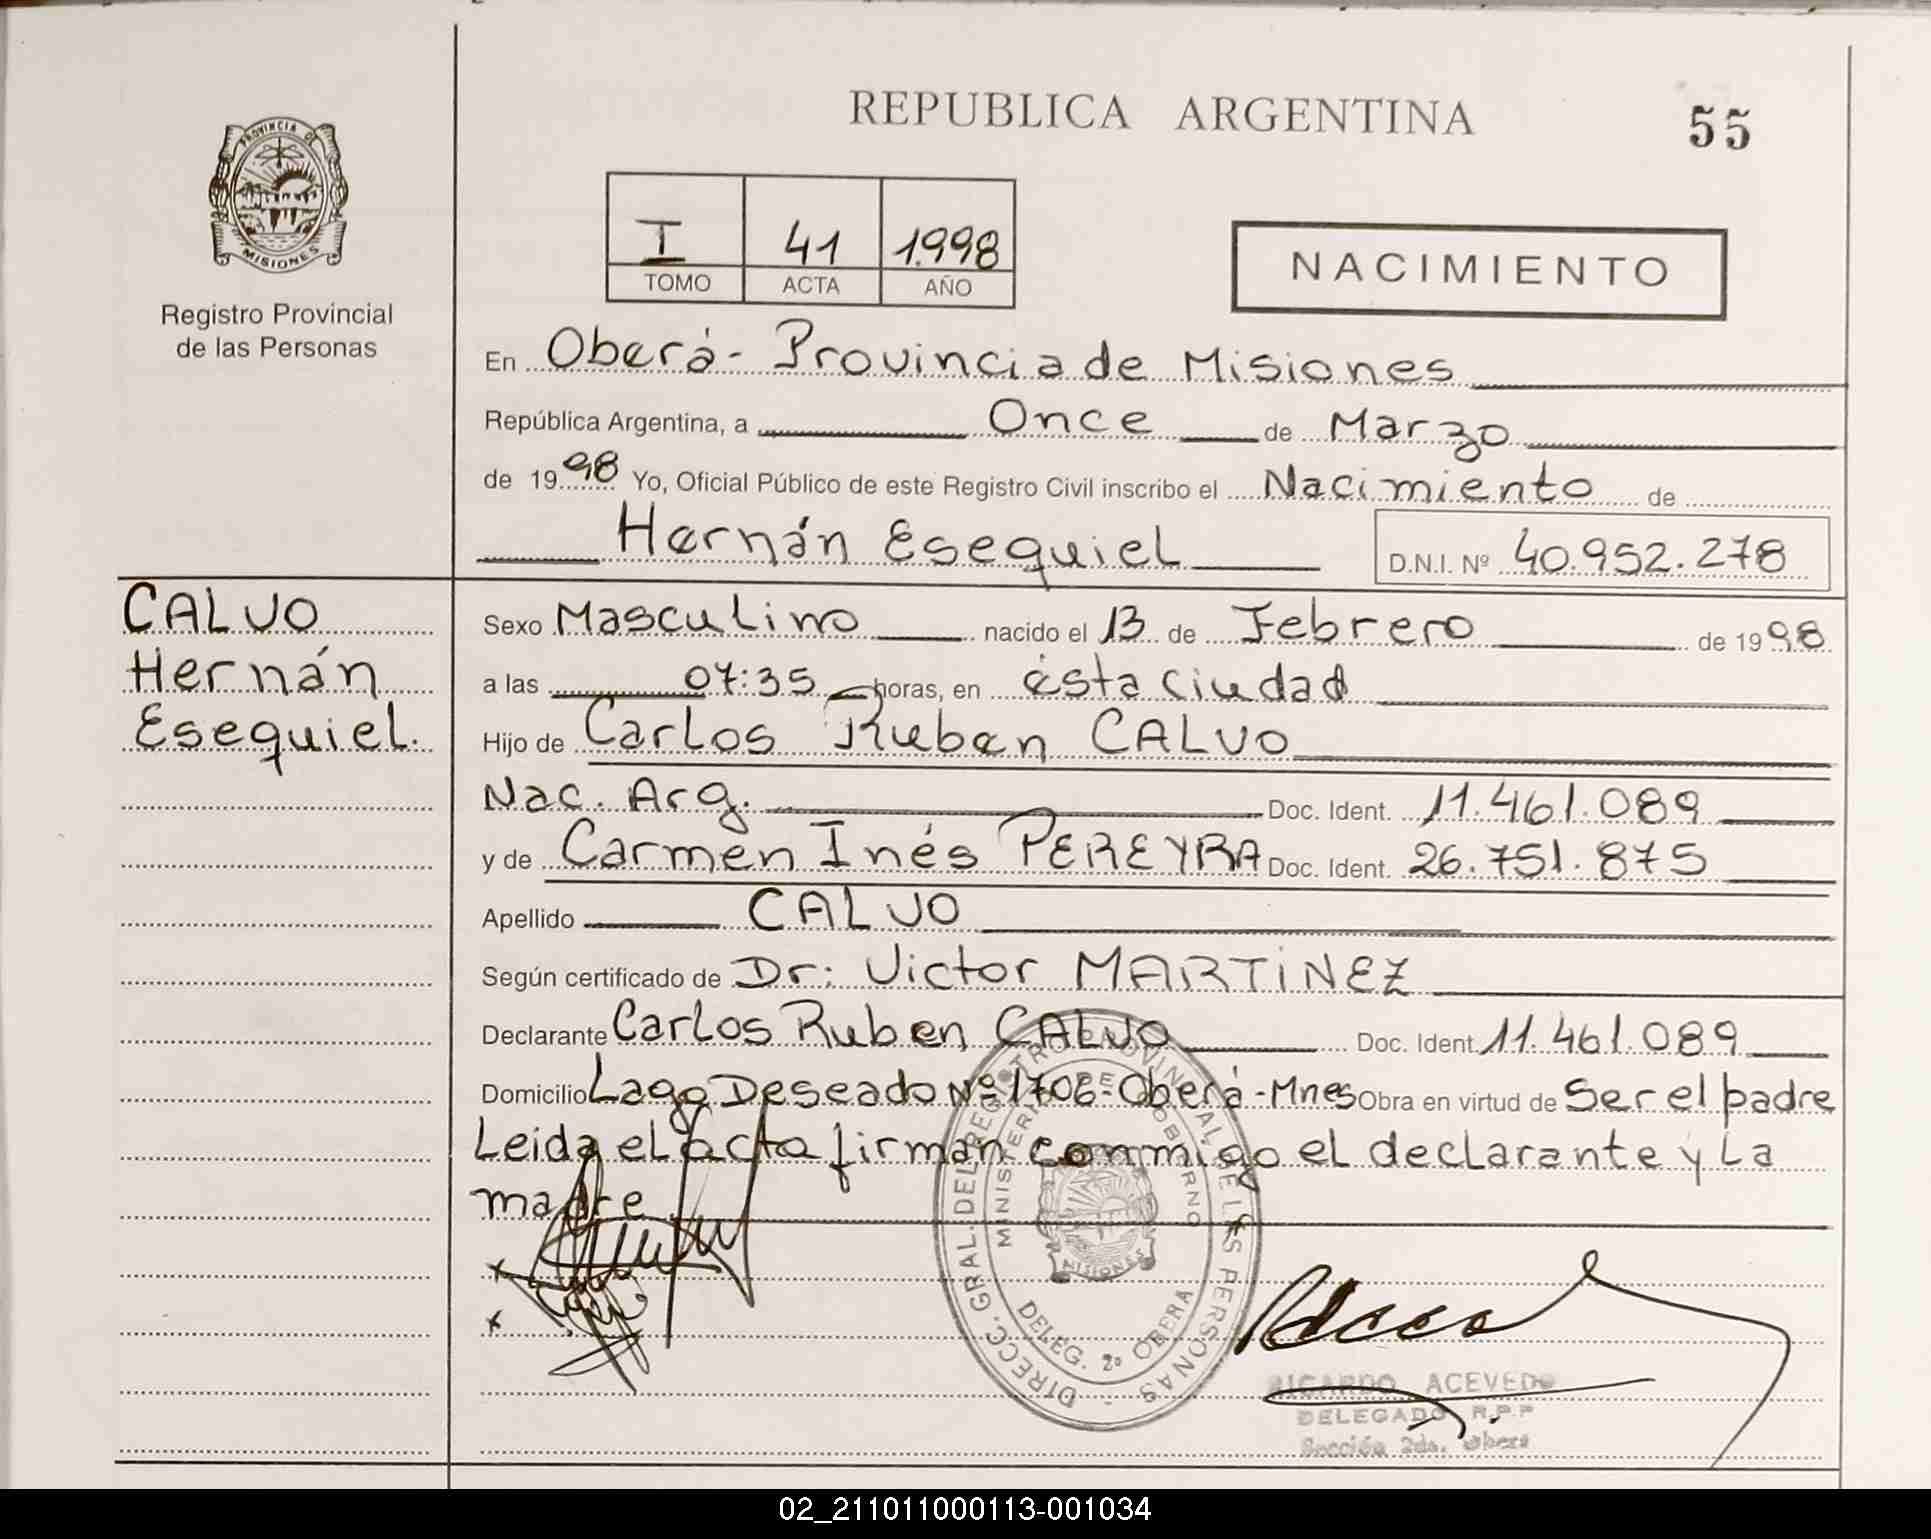 REPUBLICA ARGENTINA
55
PROVINCIA DE
MISIONES
Registro Provincial
de las Personas
I 41 1.998
TOMO ACTA AÑO
NACIMIENTO
En Oberá - Provincia de Misiones
República Argentina, a Once de Marzo
de 1998 Yo, Oficial Público de este Registro Civil inscribo el Nacimiento de
Hernán Esequiel D.N.I. Nº 40.952.278
CALVO
Hernán
Esequiel.
Sexo Masculino nacido el 13 de Febrero de 1998
a las 07:35 horas, en ésta ciudad
Hijo de Carlos Ruben CALVO
Nac. Arg. Doc. Ident. 11.461.089
y de Carmen Inés PEREYRA Doc. Ident. 26.751.875
Apellido CALVO
Según certificado de Dr: Victor MARTINEZ
Declarante Carlos Ruben CALVO Doc. Ident. 11.461.089
Domicilio Lago Deseado Nº 1706 - Oberá - Mnes Obra en virtud de Ser el padre
Leida el acta firman conmigo el declarante y La
madre
DIRECC. GRAL. DEL REGISTRO PROVINCIAL DE LAS PERSONAS
MINISTERIO DE GOBIERNO
MISIONES
DELEG. 2º OBERA
RICARDO ACEVEDO
DELEGADO R.P.P
Sección 2da. Oberá
02_211011000113-001034